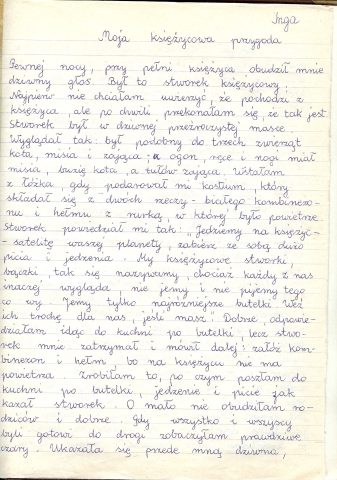 Inga
Moja księżycowa przygoda
Pewnej nocy, przy pełni księżyca obudził mnie
dziwny głos. Był to stworek księżycowy.
Najpierw nie chciałam uwierzyć, że pochodzi z
księżyca, ale po chwili przekonałam się że tak jest.
Stworek był w dziwnej przeźroczystej masce.
Wyglądał tak: był podobny do trzech zwierząt
kota, misia i zająca; a ogon, ręce i nogi miał
misia, buzię kota, a tułów zająca. Wstałam
z łóżka, gdy podarował mi kostium, który
składał się z dwoch rzeczy - białego kombinezo-
nu i hełmu z rurką, w której było powietrze
Stworek powiedział mi tak: "Jedziemy na księżyc-
-satelitę waszej planety, zabierz ze sobą dużo
picia i jedzenia. My księżycowe stworki,
bączki tak się nazywamy, chociaż każdy z nas
inaczej wygląda nie jemy i nie pijemy tego
co wy. Jemy tylko najróżniejsze butelki. Weź
ich trochę dla nas, jeśli masz". Dobrze odpowie-
działam idąc do kuchni po butelki, lecz stwo-
rek mnie zatrzymał i mówił dalej: załóż kom-
binezon i hełm, bo na księżycu nie ma
powietrza. Zrobiłam to, po czym poszłam do
kuchni po butelki, jedzenie i picie jak
kazał stworek. O mało nie obudziłam ro-
dziców i dobrze. Gdy wszystko i wszyscy
byli gotowi do drogi zobaczyłam prawdziwe
czary. Ukazała się przede mną dziwna,